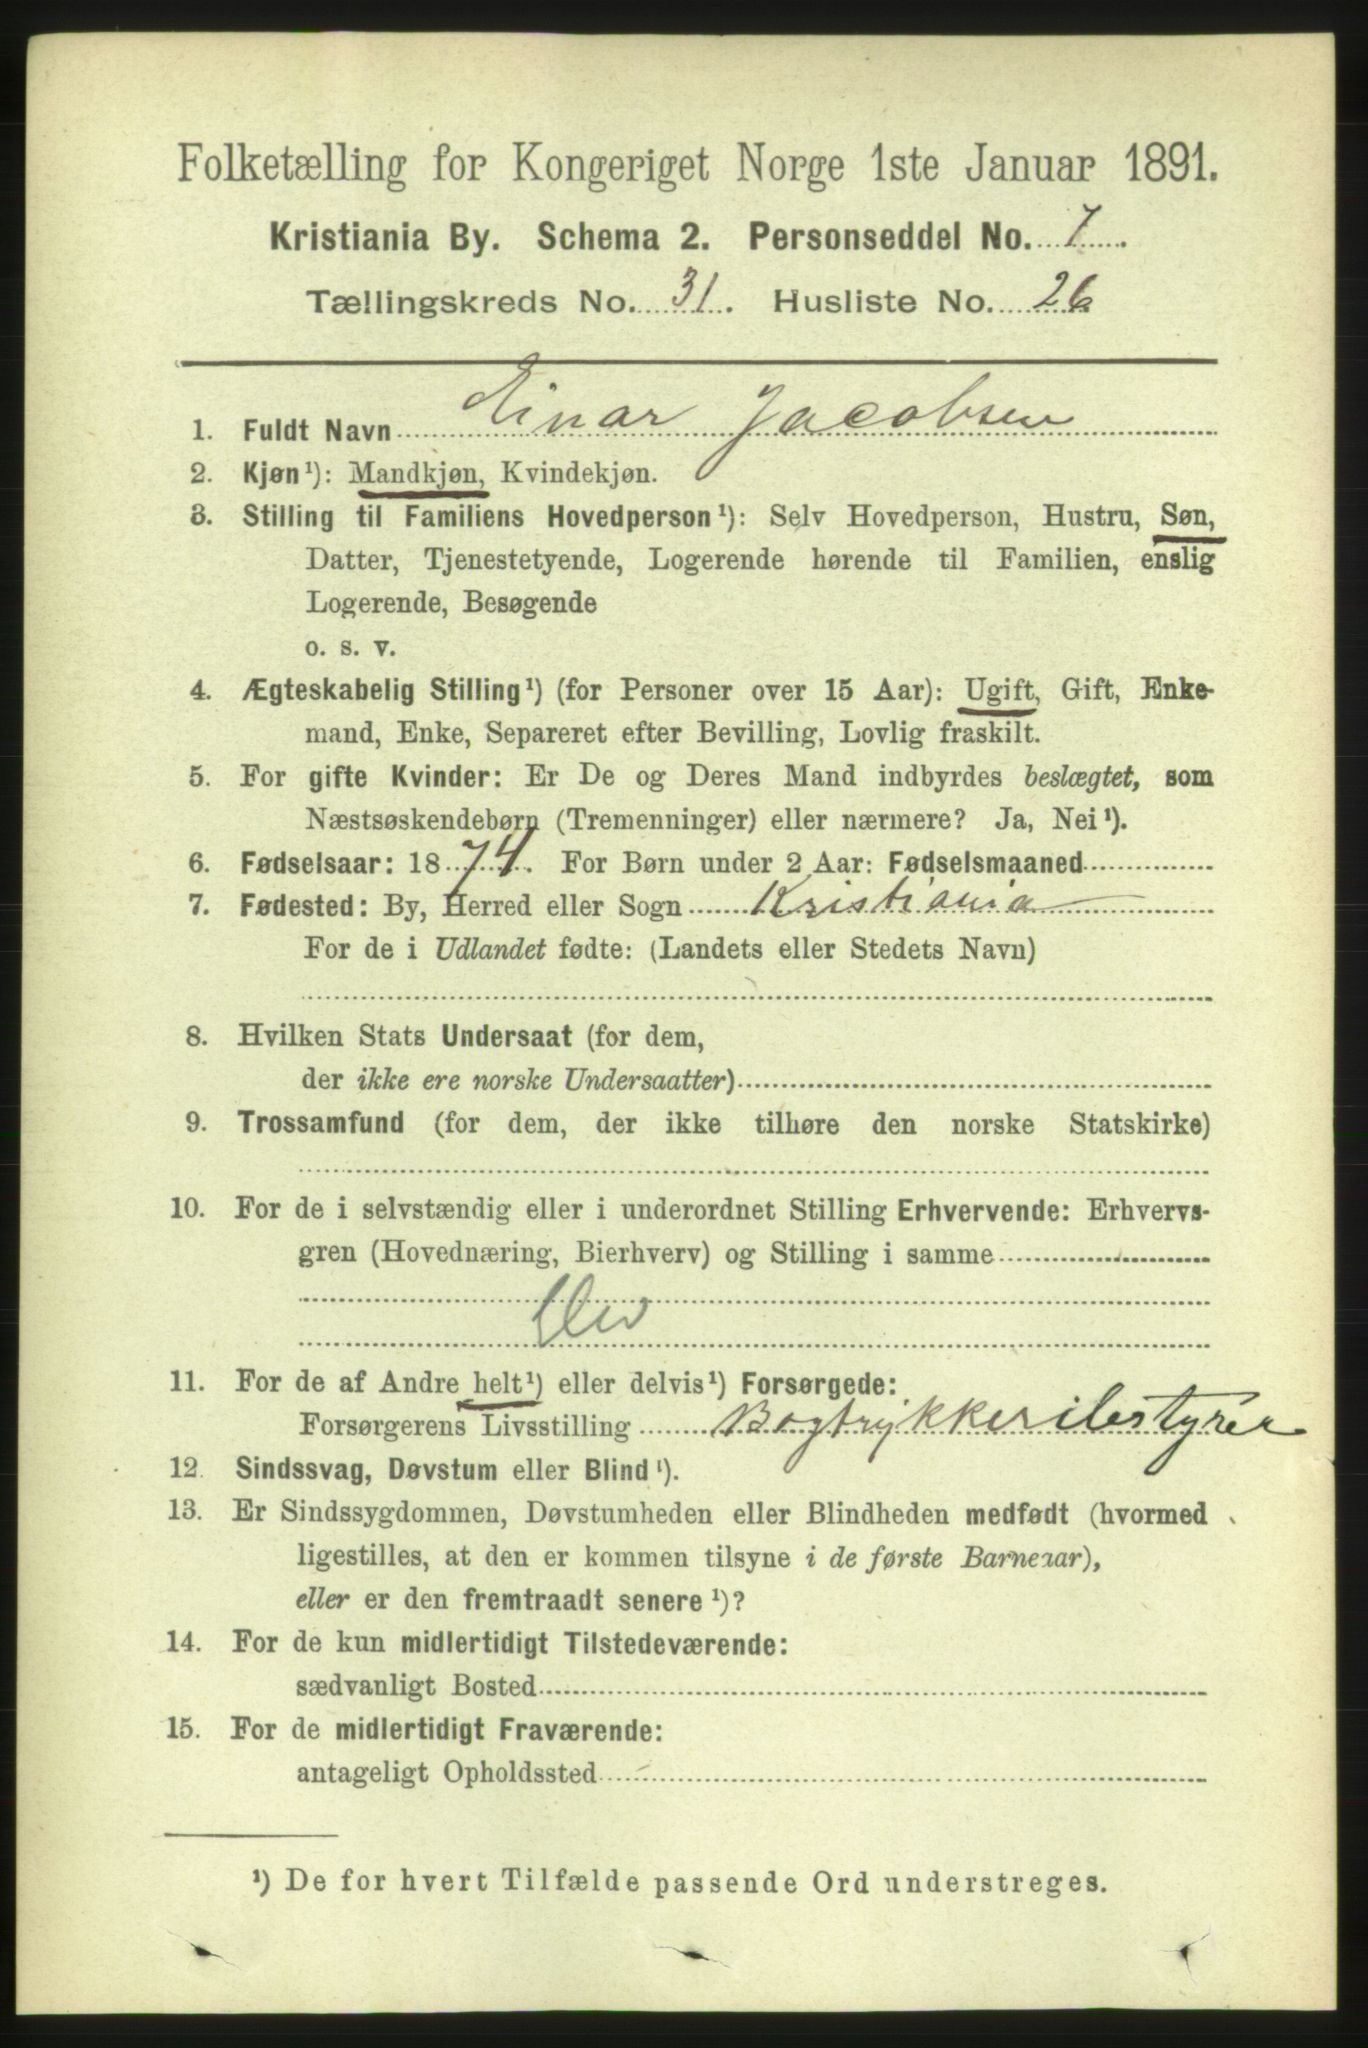 Folketælling for Kongeriget Norge 1ste Januar 1891.
Kristiania By. Schema 2. Personseddel No. 7.
Tællingskreds No. 31. Husliste No. 26
1. Fuldt Navn Einar Jacobsen
2. Kjøn¹): Mandkjøn, Kvindekjøn.
3. Stilling til Familiens Hovedperson¹): Selv Hovedperson, Hustru, Søn,
Datter, Tjenestetyende, Logerende hørende til Familien, enslig
Logerende, Besøgende
o. s. v.
4. Ægteskabelig Stilling¹) (for Personer over 15 Aar): Ugift, Gift, Enke-
mand, Enke, Separeret efter Bevilling, Lovlig fraskilt.
5. For gifte Kvinder: Er De og Deres Mand indbyrdes beslægtet, som
Næstsøskendebørn (Tremenninger) eller nærmere? Ja, Nei¹).
6. Fødselsaar: 1874. For Børn under 2 Aar: Fødselsmaaned
7. Fødested: By, Herred eller Sogn Kristiania
For de i Udlandet fødte: (Landets eller Stedets Navn)
8. Hvilken Stats Undersaat (for dem,
der ikke ere norske Undersaatter)
9. Trossamfund (for dem, der ikke tilhøre den norske Statskirke)
10. For de i selvstændig eller i underordnet Stilling Erhvervende: Erhvervs-
gren (Hovednæring, Bierhverv) og Stilling i samme
Elev
11. For de af Andre helt¹) eller delvis¹) Forsørgede:
Forsørgerens Livsstilling Bogtrykkeribestyrer
12. Sindssvag, Døvstum eller Blind¹).
13. Er Sindssygdommen, Døvstumheden eller Blindheden medfødt (hvormed
ligestilles, at den er kommen tilsyne i de første Barneaar),
eller er den fremtraadt senere¹)?
14. For de kun midlertidigt Tilstedeværende:
sædvanligt Bosted
15. For de midlertidigt Fraværende:
antageligt Opholdssted
¹) De for hvert Tilfælde passende Ord understreges.